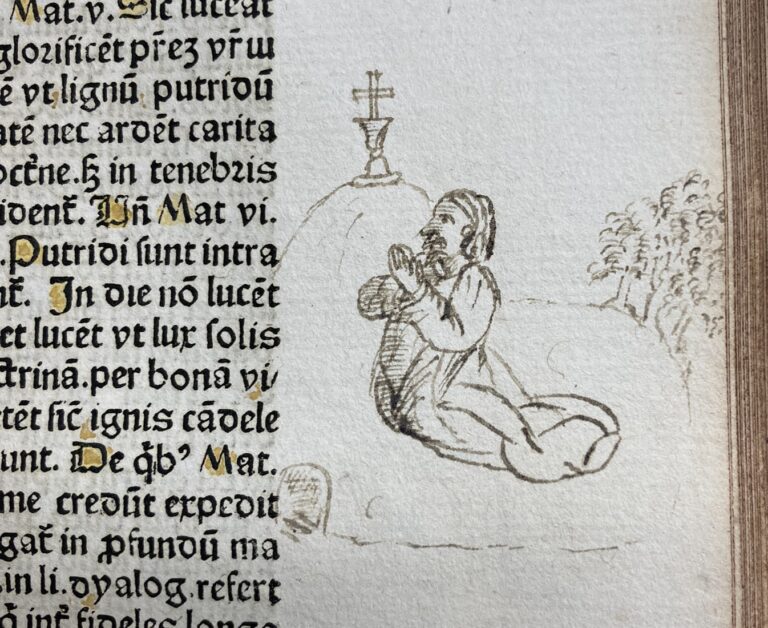 Mat.v. Sic luceat
glorificēt pr̄eʒ vr̄ɯ
ē vt lignū putridū
atē nec ardēt carita
octr̄ne.ꝫ in tenebris
ident᷑. Un̄ Mat vi.
. Putridi sunt intra
nt᷑. In die nō lucēt
et lucēt vt lux solis
ctrinā.per bonā vi/
tēt sic̄ ignis cādele
unt. De q̄bꝰ Mat.
me credūt expedit
gat᷑ in ꝓfundū ma
.in li.dyalog.refert
int᷑ fideles longe